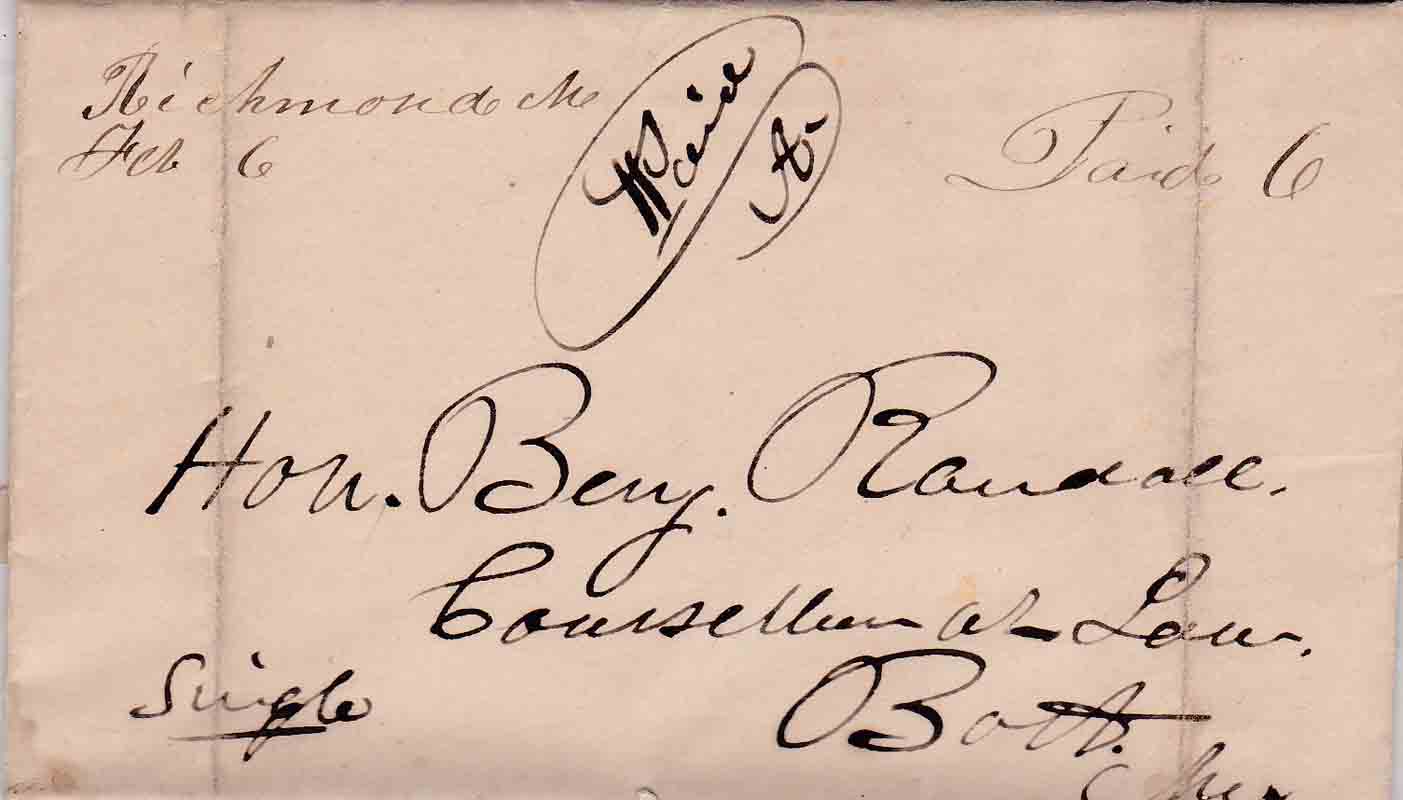 Richmond Me
Feb 6
Paid
Paid 6
Hon. Benj. Randall.
Counsellor at Law.
Bath.
Me.
Single